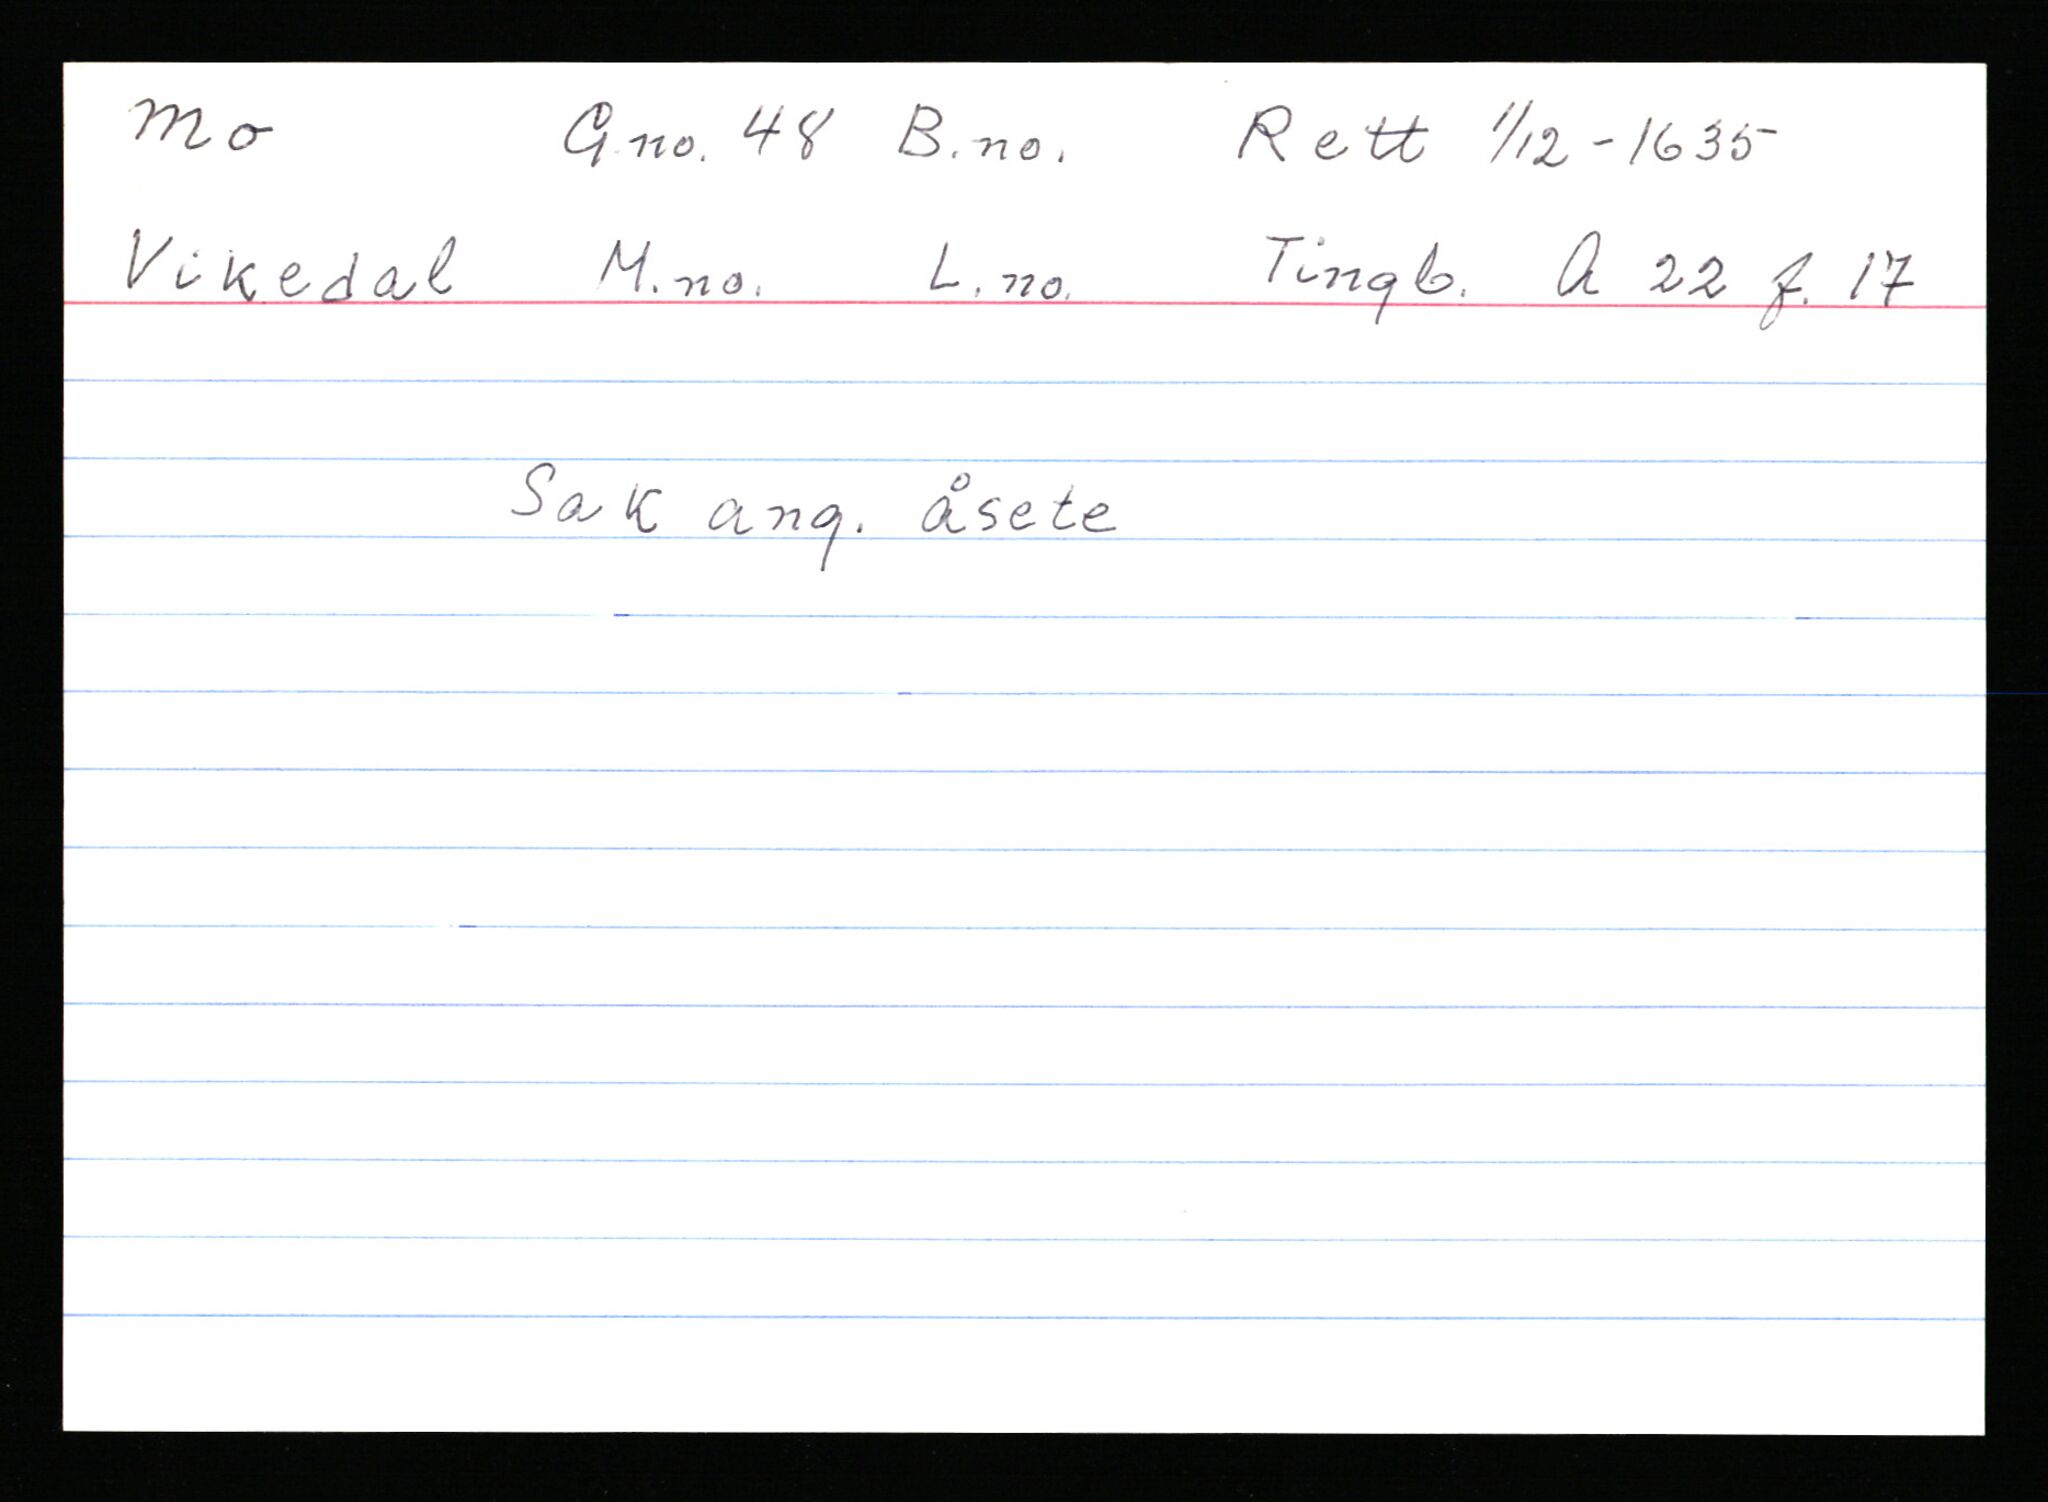 Mo G.no. 48 B.no. Rett 1/12-1635
Vikedal M.no. L.no. Tingb. A 22 f. 17
Sak ang. åsete